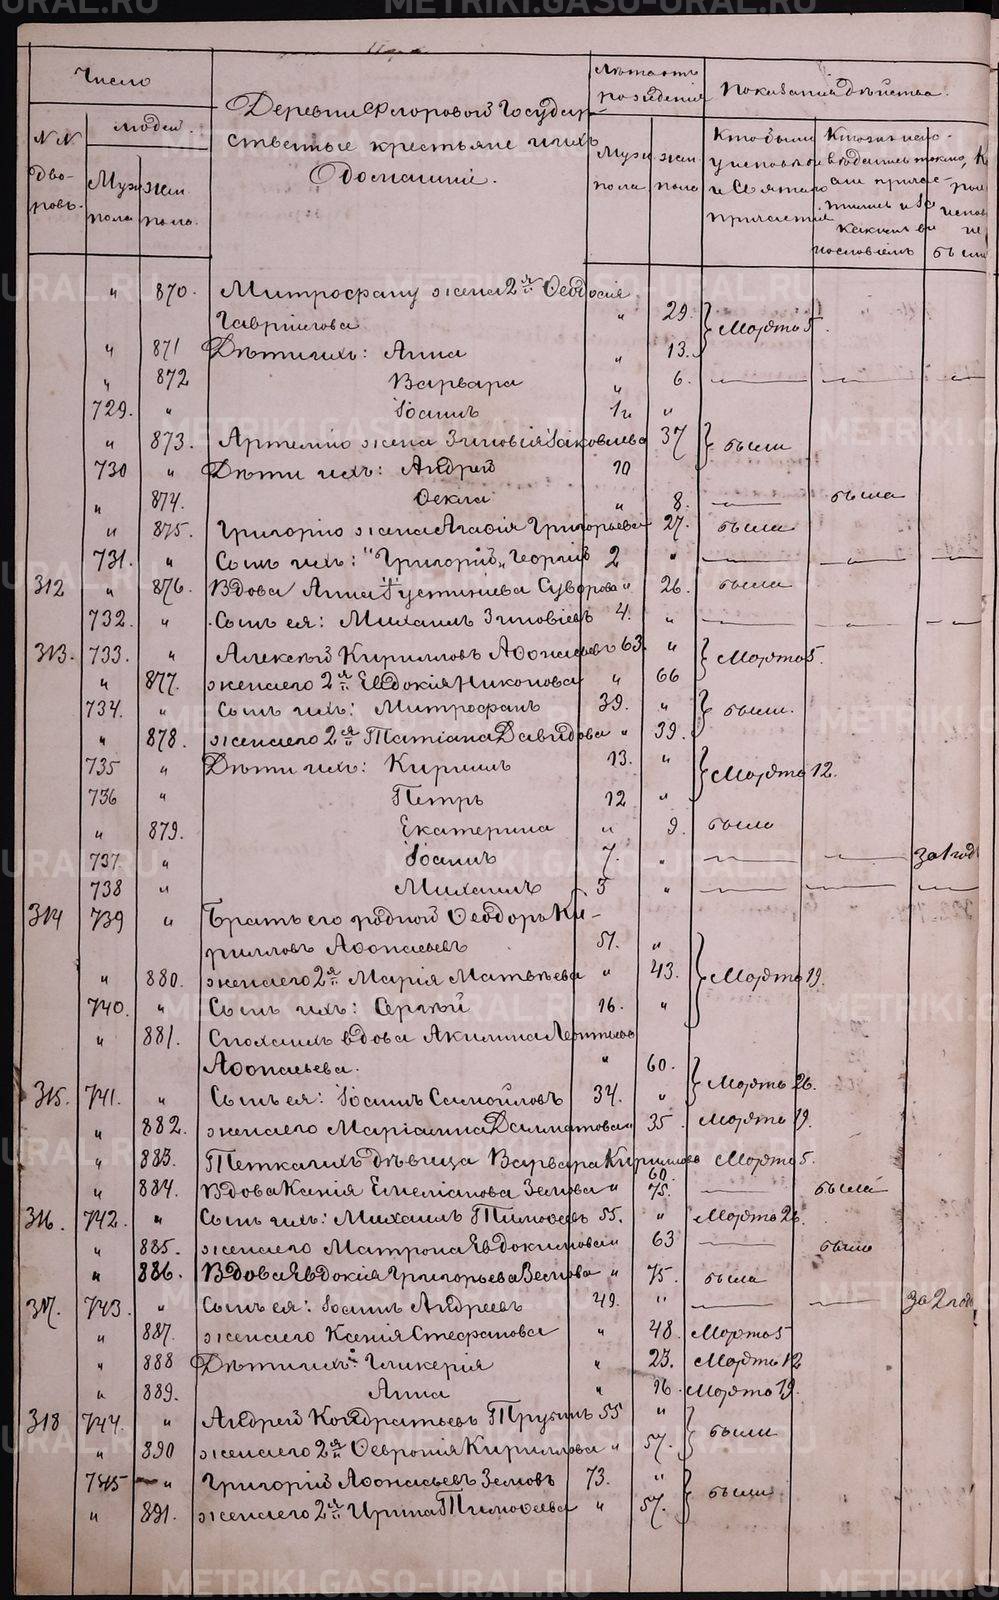 Число
Деревни Флоровой Государ-
ственные крестьяне и ихъ
Домашніи.
Лѣтность
рожденія
Показанія дѣйства.
№№
дво-
ровъ.
людей.
Муж
пола
жен
пола.
Муж
пола
жен
пола
Кто были
у исповѣди
и Святаго
причастія
870. Митрофану жена 2я Ѳеодосія
Гавриилова 29. Марта 5.
871 Дѣти ихъ: Анна 13.
872 Варвара 6.
729. Іоаннъ
873. Артемію жена Зиновія Іаковлева 37 были
730 Дѣти ихъ: Андрей 10
874. Ѳекла 8. была
875. Григорію жена Агафія Григорьева 27. была
731. Сынъ ихъ: "Григорій" Георгій 2
312 876. Вдова Анна Густинiева Суворова 26. была
732. Сынъ ея: Михаилъ Зиновіевъ 4.
313. 733. Алексѣй Кирилловъ Аѳонасьевъ 63. Марта 5.
877. жена его 2я Евдокія Никонова 66
734. Сынъ ихъ: Митрофанъ 39. были.
878. жена его 2я Татіана Давидова 39.
735 Дѣти ихъ: Кириллъ 13. Марта 12.
736 Петръ 12
879. Екатерина 9. была
737. Іоаннъ 7. за 1 год
738 Михаилъ 5
314 739 Братъ его родной Ѳеодоръ Ки-
рилловъ Аѳонасьевъ 51.
880. жена его 2я Марія Матвѣева 43. Марта 19.
740. Сынъ ихъ: Сергѣй 16.
881. Сноха ихъ вдова Акилина Леонтьева
Аѳонасьева. 60. Марта 26.
315. 741. Сынъ ея: Іоаннъ Самойловъ 34.
882. жена его Маріамна Далматова 35 Марта 19.
883. Тетка ихъ дѣвица Варвара Кириллова 60. Марта 5.
884. Вдова Ксенія Емеліанова Земова 75. была
316. 742. Сынъ ихъ: Михаилъ Тимоѳеевъ 55. Марта 26.
885. жена его Матрона Явдокимова 63 была
886. Вдова Явдокія Григорьева Земова 75. была
317. 743. Сынъ ея: Іоаннъ Андреевъ 49. за 2 года
887. жена его Ксенія Стефанова 48. Марта 5
888 Дѣти ихъ: Гликерія 23. Марта 12
889. Анна 16. Марта 19.
318 744. Андрей Кондратьевъ Трубинъ 55 были
890 жена его 2я Ѳевронія Кириллова 57.
745 Григорій Аѳонасьевъ Земовъ 73. были
891. жена его 2я Ирина Тимоѳеева 57.
METRIKI.GASO-URAL.RU